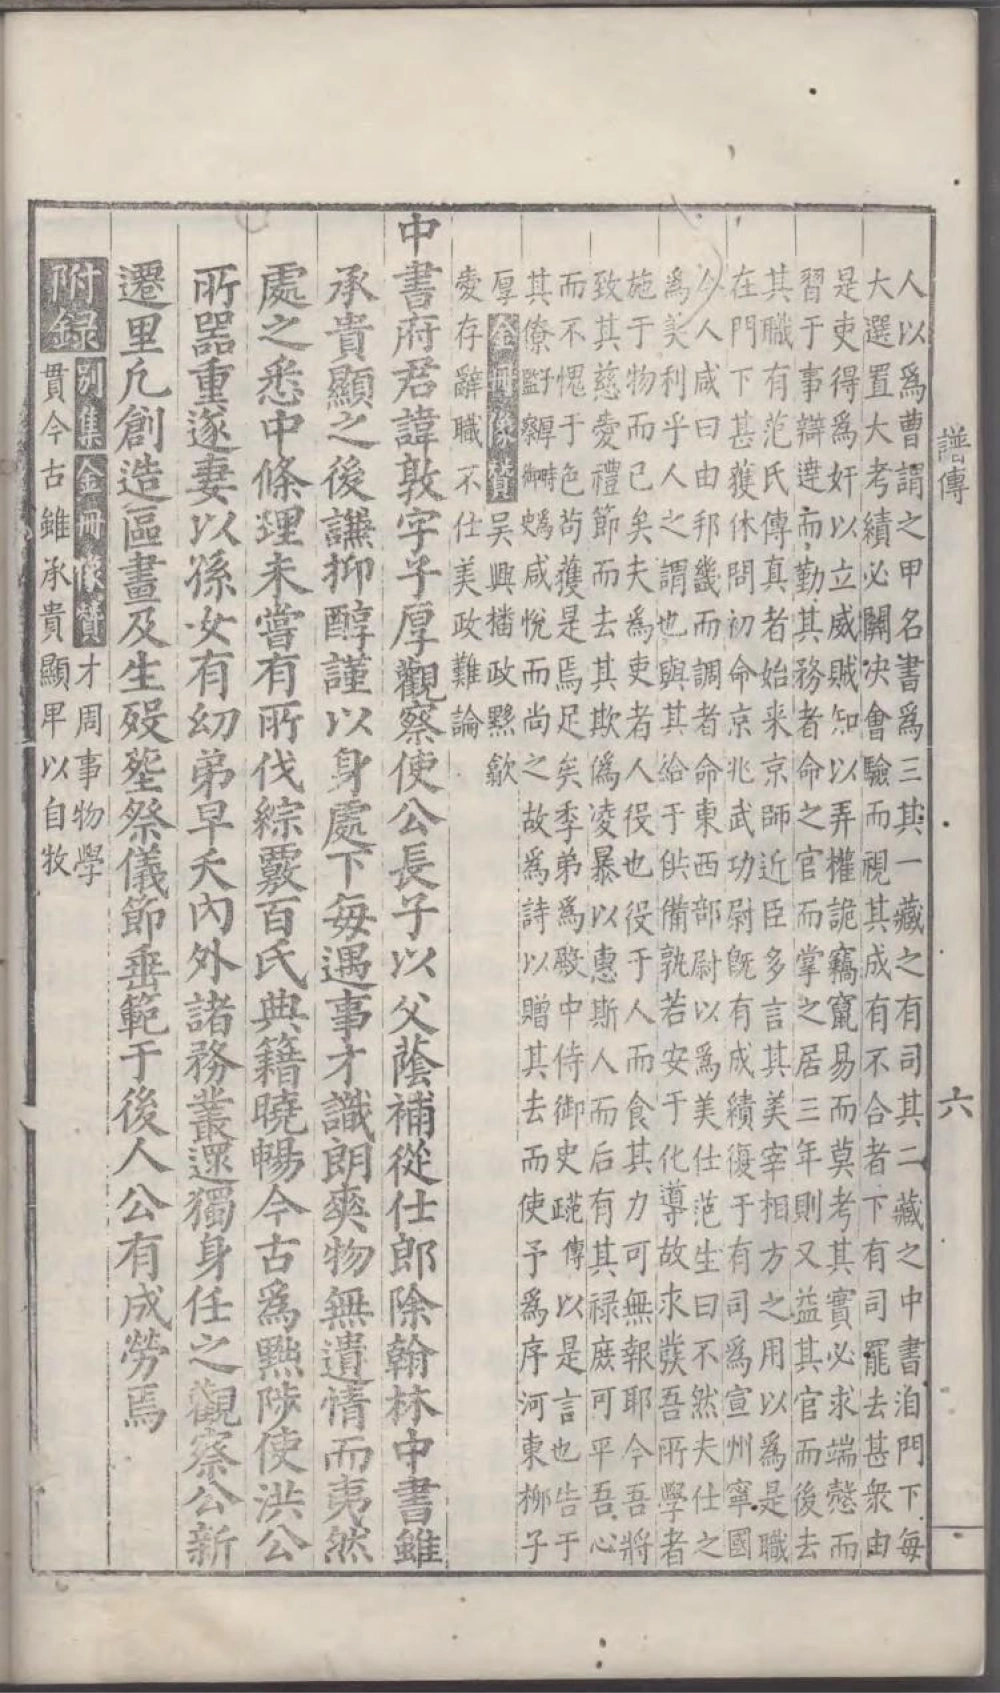 譜傳 六
人以爲曹謂之甲名書爲三其一藏之有司其二藏之中書洎門下每
大選置大考績必關决會驗而視其成有不合者下有司罷去甚衆由
是吏得爲奸以立威賊知以弄權詭竊竄易而莫考其實必求端慤而
習于事辯達而勤其務者命之官而掌之居三年則又益其官而後去
其職有范氏傳真者始来京師近臣多言其美宰相方之用以爲是職
在門下甚獲休問初命京兆武功尉旣有成績復于有司爲宣州寧國
人咸曰由邦畿而調者命東西部尉以爲美仕范生曰不然夫仕之
爲美利乎人之謂也與其給于供備孰若安于化導故求發吾所學者
施于物而已矣夫爲吏者人役也役于人而食其力可無報耶今吾將
致其慈愛禮節而去其欺僞凌暴以惠斯人而后有其禄庶可平吾心
而不愧于色苟獲是焉足矣季弟爲殿中侍御史傳以是言也告于
其僚監察御史咸悅而尚之故爲詩以贈其去而使予爲序河東柳子
厚 金冊像贊 吳興播政黟歙
愛存辭職不仕美政難論
中書府君諱敦字子厚觀察使公長子以父蔭補從仕郎除翰林中書雖
承貴顯之後謙抑醇謹以身處下每遇事才識朗爽物無遺情而夷然
處之悉中條理未嘗有所伐綜覈百氏典籍曉暢今古爲黜陟使洪公
所器重遂妻以孫女有幼弟早夭內外諸務叢還獨身任之觀察公新
遷里凡創造區畫及生殁塟祭儀節垂範于後人公有成勞焉
附錄 別集金冊像贊 才周事物學
貫今古雖承貴顯卑以自牧